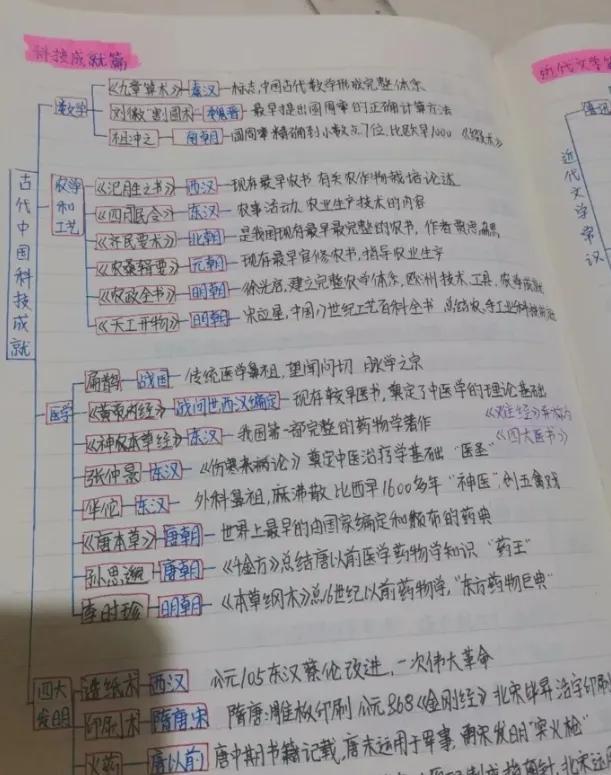 科技成就篇
近代文学常
古代中国科技成就
数学
《九章算术》 东汉 标志,中国古代数学形成完整体系
刘徽"割圆术" 魏晋 最早提出圆周率的正确计算方法
祖冲之 南朝 圆周率精确到小数点7位,比欧早1000 《缀术》
农学和工艺
《氾胜之书》 西汉 现存最早农书 有关农作物栽培论述
《四月民令》 东汉 农事活动、农业生产技术的内容
《齐民要术》 北朝 是我国现存最早最完整的农书,作者贾思勰
《农桑辑要》 元朝 现存最早官修农书,指导农业生产
《农政全书》 明朝 徐光启,建立完整农学体系,欧洲技术、工具、
《天工开物》 明朝 宋应星,中国17世纪工艺百科全书 总结农、手工业
医学
扁鹊 战国 传统医学鼻祖,望闻问切 脉学之宗
《黄帝内经》 战问世,西汉编定 现存较早医书,奠定了中医学的理论基础
《神农本草经》 东汉 我国第一部完整的药物学著作
《难经》
《四大医书》
张仲景 东汉 《伤寒杂病论》奠定中医治疗学基础 "医圣"
华佗 东汉 外科鼻祖,麻沸散 比西早1600多年 "神医",创五禽戏
《唐本草》 唐朝 世界上最早的由国家编定和颁布的药典
孙思邈 唐朝 《千金方》总结唐以前医学药物学知识 "药王"
李时珍 明朝 《本草纲木》总16世纪以前药物学,"东方药物巨典"
四大发明
造纸术 西汉 公元105东汉蔡伦改进,一次伟大革命
印刷术 隋唐,宋 隋唐:雕板印刷 公元868《金刚经》北宋毕昇活字印刷
火药 唐以前 唐中期书籍记载,唐末运用于军事,南宋发明"突火枪"
制成指南针,北宋
近代文学常识
鲁迅